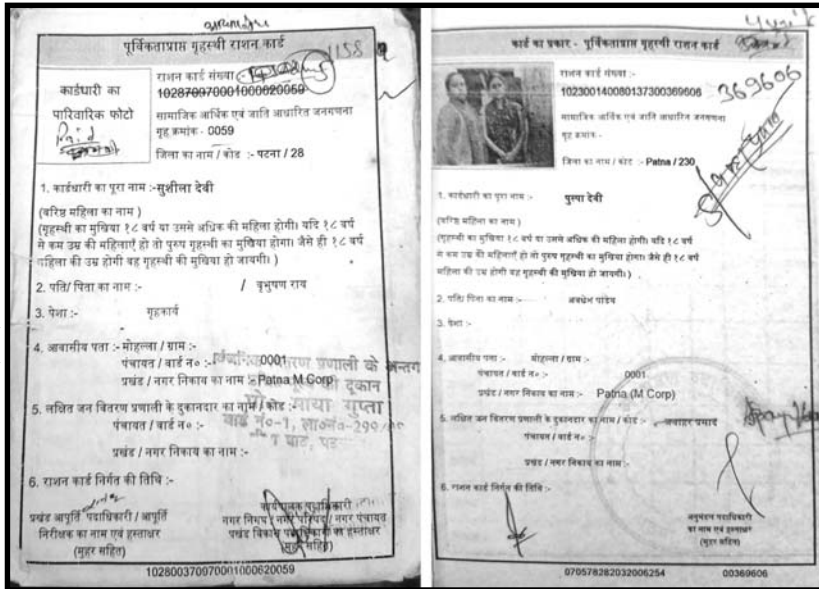 पूर्विकताप्राप्त गृहस्थी राशन कार्ड
1158
कार्डधारी का
पारिवारिक फोटो
राशन कार्ड संख्या :-
10287097000100062005 9
सामाजिक आर्थिक एवं जाति आधारित जनगणना
गृह क्रमांक - 0059
जिला का नाम / कोड :- पटना / 28
1. कार्डधारी का पूरा नाम :-सुशीला देवी
(वरिष्ठ महिला का नाम )
(गृहस्थी का मुखिया १८ वर्ष या उससे अधिक की महिला होगी। यदि १८ वर्ष
से कम उम्र की महिलाएँ हो तो पुरुष गृहस्थी का मुखिया होगा। जैसे ही १८ वर्ष
महिला की उम्र होगी वह गृहस्थी की मुखिया हो जायगी। )
2. पति/ पिता का नाम :- / बृभुषण राय
3. पेशा :- गृहकार्य
4. आवासीय पता :- मोहल्ला / ग्राम :-
पंचायत / वार्ड न० :- 0001
वितरण प्रणाली के अन्तर्ग
प्रखंड / नगर निकाय का नाम :- Patna M Corp
दूकान
5. लक्षित जन वितरण प्रणाली के दुकानदार का नाम / कोड :-
माया गुप्ता
पंचायत / वार्ड न० :-
वार्ड नं०-1,
प्रखंड / नगर निकाय का नाम :-
6. राशन कार्ड निर्गत की तिथि :-
प्रखंड आपूर्ति पदाधिकारी / आपूर्ति
निरीक्षक का नाम एवं हस्ताक्षर
(मुहर सहित)
कार्यपालक पदाधिकारी
नगर निगम / नगर परिषद / नगर पंचायत
प्रखंड विकास पदाधिकारी का हस्ताक्षर
(मुहर सहित)
102800370970001000620059
कार्ड का प्रकार - पूर्विकताप्राप्त गृहस्थी राशन कार्ड
राशन कार्ड संख्या :-
10230014008013730036 9606
369606
सामाजिक आर्थिक एवं जाति आधारित जनगणना
गृह क्रमांक -
जिला का नाम / कोड :- Patna / 230
1. कार्डधारी का पूरा नाम :- पुष्पा देवी
(वरिष्ठ महिला का नाम )
(गृहस्थी का मुखिया १८ वर्ष या उससे अधिक की महिला होगी। यदि १८ वर्ष
से कम उम्र की महिलाएँ हो तो पुरुष गृहस्थी का मुखिया होगा। जैसे ही १८ वर्ष
महिला की उम्र होगी वह गृहस्थी की मुखिया हो जायगी। )
2. पति/ पिता का नाम :- अवधेष पांडेय
3. पेशा :-
4. आवासीय पता :- मोहल्ला / ग्राम :-
पंचायत / वार्ड न० :- 0001
प्रखंड / नगर निकाय का नाम :- Patna (M Corp)
5. लक्षित जन वितरण प्रणाली के दुकानदार का नाम / कोड :- जवाहर प्रसाद
पंचायत / वार्ड नं :-
प्रखंड / नगर निकाय का नाम :-
6. राशन कार्ड निर्गत की तिथि :-
अनुमंडल पदाधिकारी
का नाम एवं हस्ताक्षर
(मुहर सहित)
070578282032006254 00369606